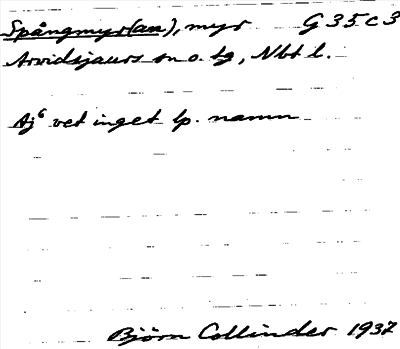 Spångmyr(an), myr G 35 c 3
Arvidsjaurs sn o. tg, Nbt l.
Aj⁶ vet inget lp. namn
Björn Collinder 1937